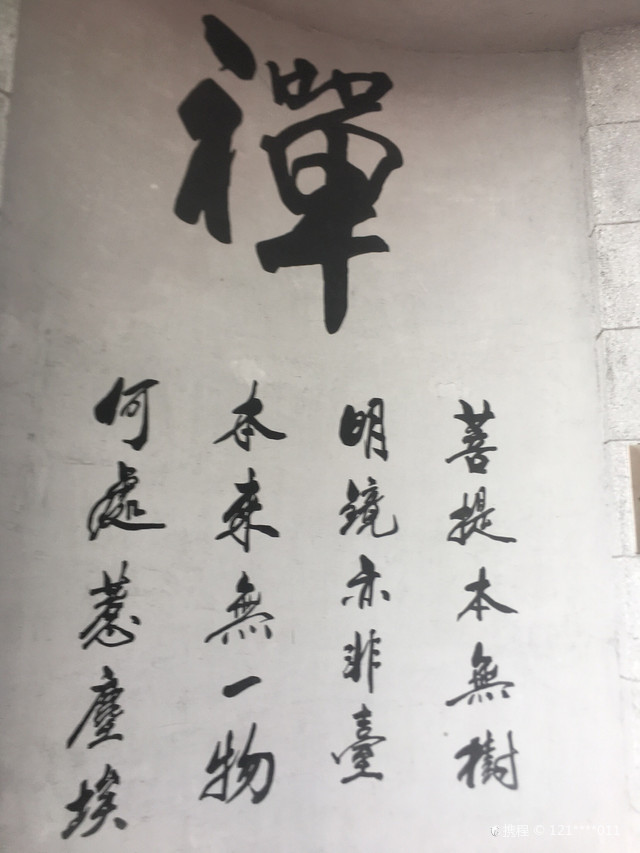 禪
菩提本無樹
明鏡亦非臺
本來無一物
何處惹塵埃
携程 © 121****011